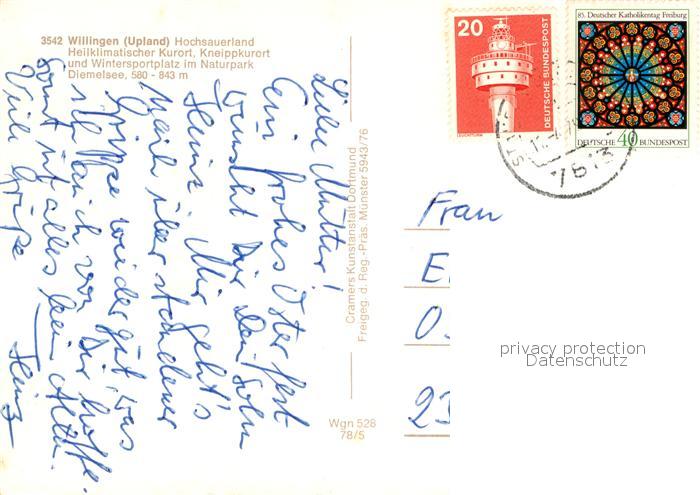 3542 Willingen (Upland) Hochsauerland
Heilklimatischer Kurort, Kneippkurort
und Wintersportplatz im Naturpark
Diemelsee, 580 - 843 m
Liebe Mutter!
Ein frohes Osterfest
wünscht Dir Dein Sohn
Heinz. Mir geht's
nach überstandener
Grippe wieder gut, was
ich auch von Dir hoffe.
Sonst ist alles beim Alten.
Viele Grüße
Heinz
Cramers Kunstanstalt Dortmund
Freigeg. d. Reg.-Präs. Münster 5943/76
Wgn 528
78/5
20
DEUTSCHE BUNDESPOST
LEUCHTTURM
85. Deutscher Katholikentag Freiburg
DEUTSCHE 40 BUNDESPOST
Frau
E
O
23
privacy protection
Datenschutz